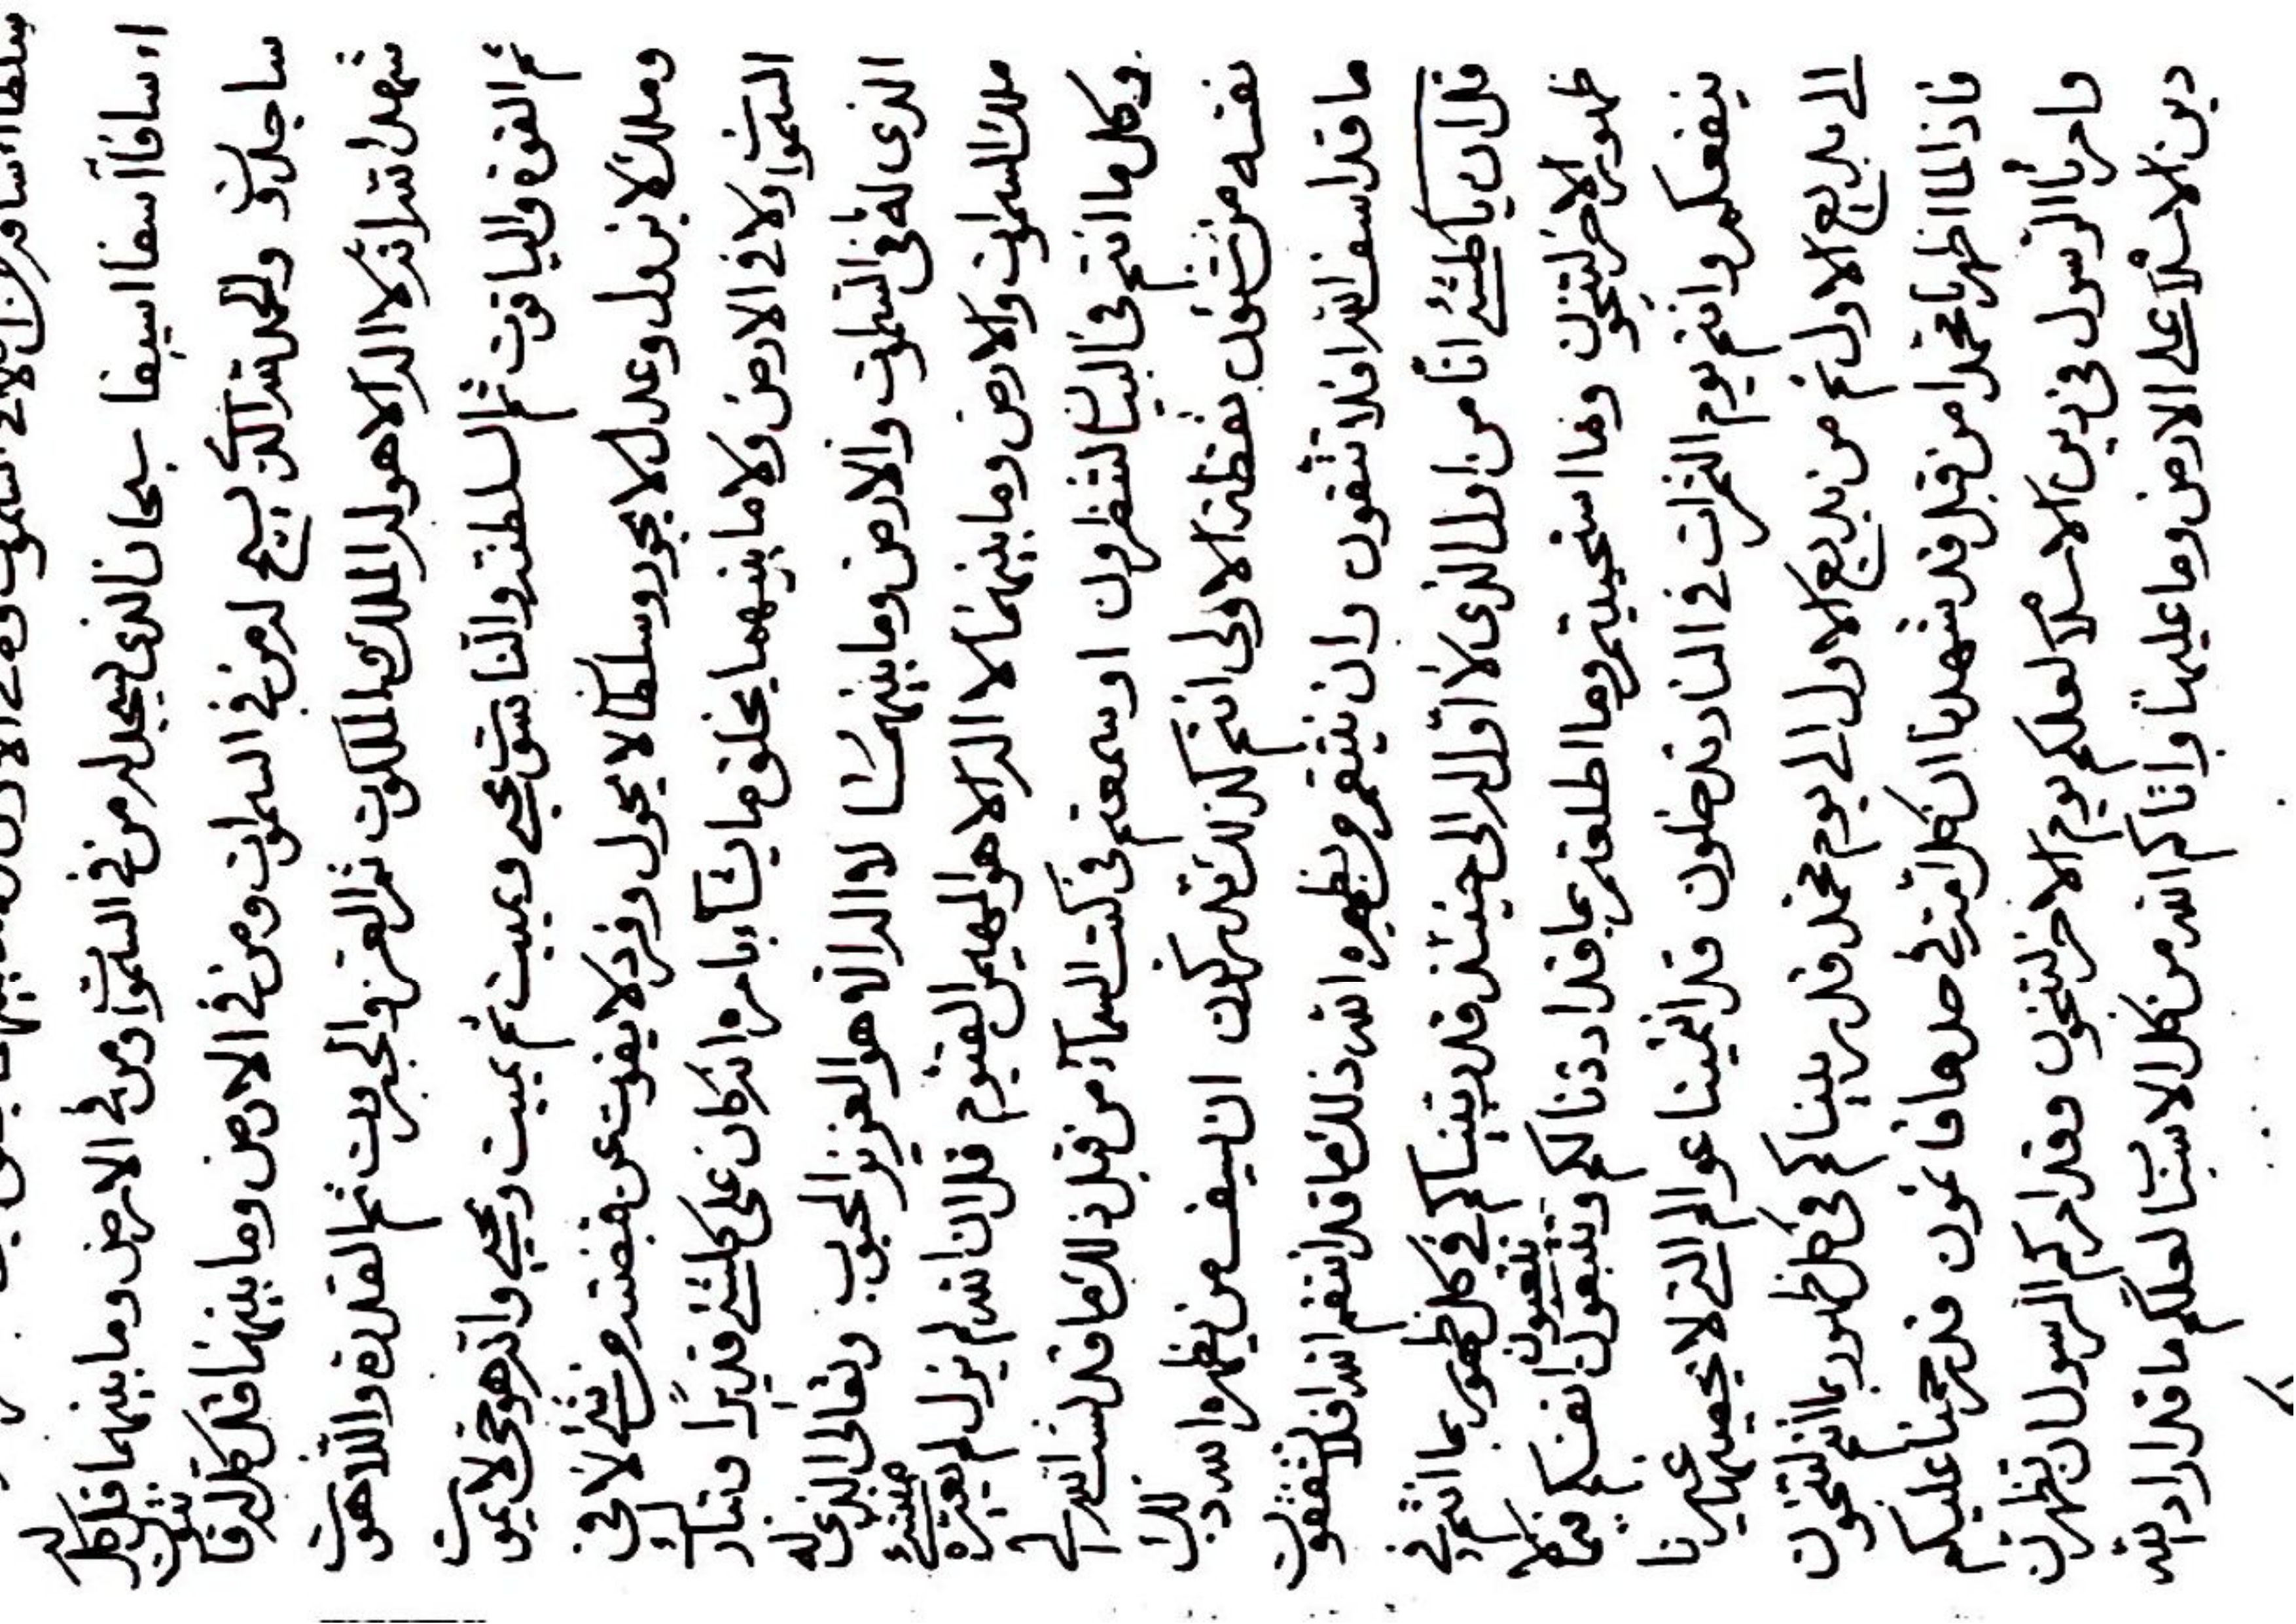 اسافا آسفا اسيفا سبحان الذي يسجد له من في السموات ومن في الارض وما بينهما قل كل له
ساجدون والحمد لله الذي يسبح له من في السموات ومن في الارض وما بينهما قل كل له قانتون
شهد الله انه لا اله الا هو له الملك والملكوت ثم العز والجبروت ثم القدرة واللاهوت
ثم القوة والياقوت ثم السلطنة والناسوت يحيي ويميت ثم يميت ويحيي وانه هو حي لا يموت
وملك لا يزول وعدل لا يجور وسلطان لا يحول وفرد لا يفوت عن قبضته من شئ لا في
السموات ولا في الارض ولا ما بينهما يخلق ما يشآء بامره انه كان على كلشئ قديرا وتبارك
الذي له ما في السموات والارض وما بينهما لا اله الا هو العزيز المحبوب وتعالى الذي له
ملك السموات والارض وما بينهما لا اله الا هو المهيمن القيوم قل ان الله لم يزل لم
وكل ما انتم في البيان لتقرؤن او سمعتم في كتب السمآء من قبل ذلك ما قد نسب الله الى
نفسه من شئون نقطة الاولى انتم كذلك تدركون ان من يظهره الله ذلك
ما قد اسف الله افلا تتقون وان ينتقم من يظهره الله ذلك ما قد انتقم الله افلا تتقون
قل ان يا كلشئ انا من اول الذي لا اول له الى حينئذ قد ربيناكم في كل ظهور بما انتم في
ظهور الاخر لتنجون وما استحييتم وما اطلعتم بما قد اردنا لكم وتتبعون انفسكم في ما لا
ينفعكم وانتم يوم الثمرات في النار تدخلون قد عوالم التي لا يحصيها غيرنا
الى بديع الاول ثم من بديع الاول الى يوم محمد قد ربيناكم في كل ظهور بما انتم لتنجون
فاذا لما اظهرنا محمدا من قبل قد شهدنا ان كل امة في حدها قد رحمنا عليكم
وامرنا الرسول في دين الاسلام لعلكم يوم الاخر لتنجون وقد امركم الرسول ان تظهرن
دين الاسلام على الارض وما عليها واتاكم الله من كل الاسباب لعلكم ما قد اراد الله